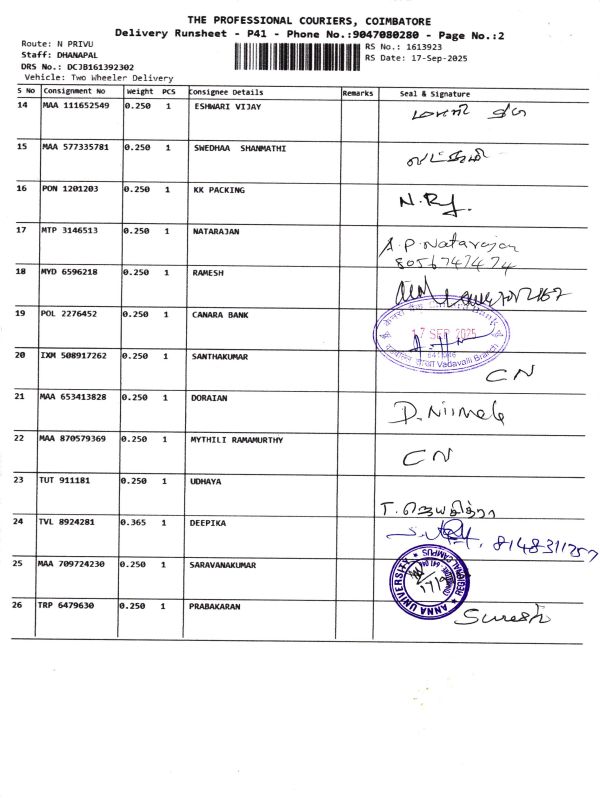 THE PROFESSIONAL COURIERS, COIMBATORE
Delivery Runsheet - P41 - Phone No.:9047080280 - Page No.:2
Route: N PRIVU
RS No.: 1613923
Staff: DHANAPAL
RS Date: 17-Sep-2025
DRS No.: DCJB161392302
Vehicle: Two Wheeler Delivery
S No Consignment No Weight PCS Consignee Details Remarks Seal & Signature
14 MAA 111652549 0.250 1 ESHWARI VIJAY
15 MAA 577335781 0.250 1 SWEDHAA SHANMATHI
16 PON 1201203 0.250 1 KK PACKING
17 MTP 3146513 0.250 1 NATARAJAN A.P.Natarajan
8056747474
18 MYD 6596218 0.250 1 RAMESH
19 POL 2276452 0.250 1 CANARA BANK 17 SEP 2025
Vadavalli Branch
20 IXM 508917262 0.250 1 SANTHAKUMAR CN
21 MAA 653413828 0.250 1 DORAIAN D. Nirmala
22 MAA 870579369 0.250 1 MYTHILI RAMAMURTHY CN
23 TUT 911181 0.250 1 UDHAYA T. ஜெயசித்ரா
24 TVL 8924281 0.365 1 DEEPIKA
25 MAA 709724230 0.250 1 SARAVANAKUMAR ANNA UNIVERSITY REGIONAL CAMPUS
26 TRP 6479630 0.250 1 PRABAKARAN Suresh